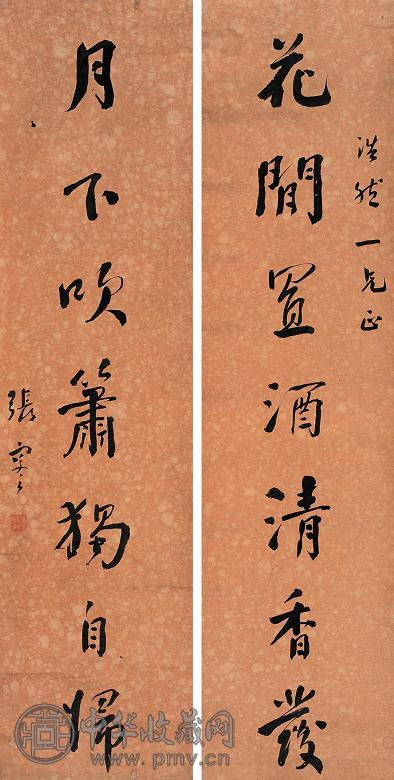 浩然一兄正
花間置酒清香發
月下吹簫獨自歸
張
中华收藏网
www.pmv.cn